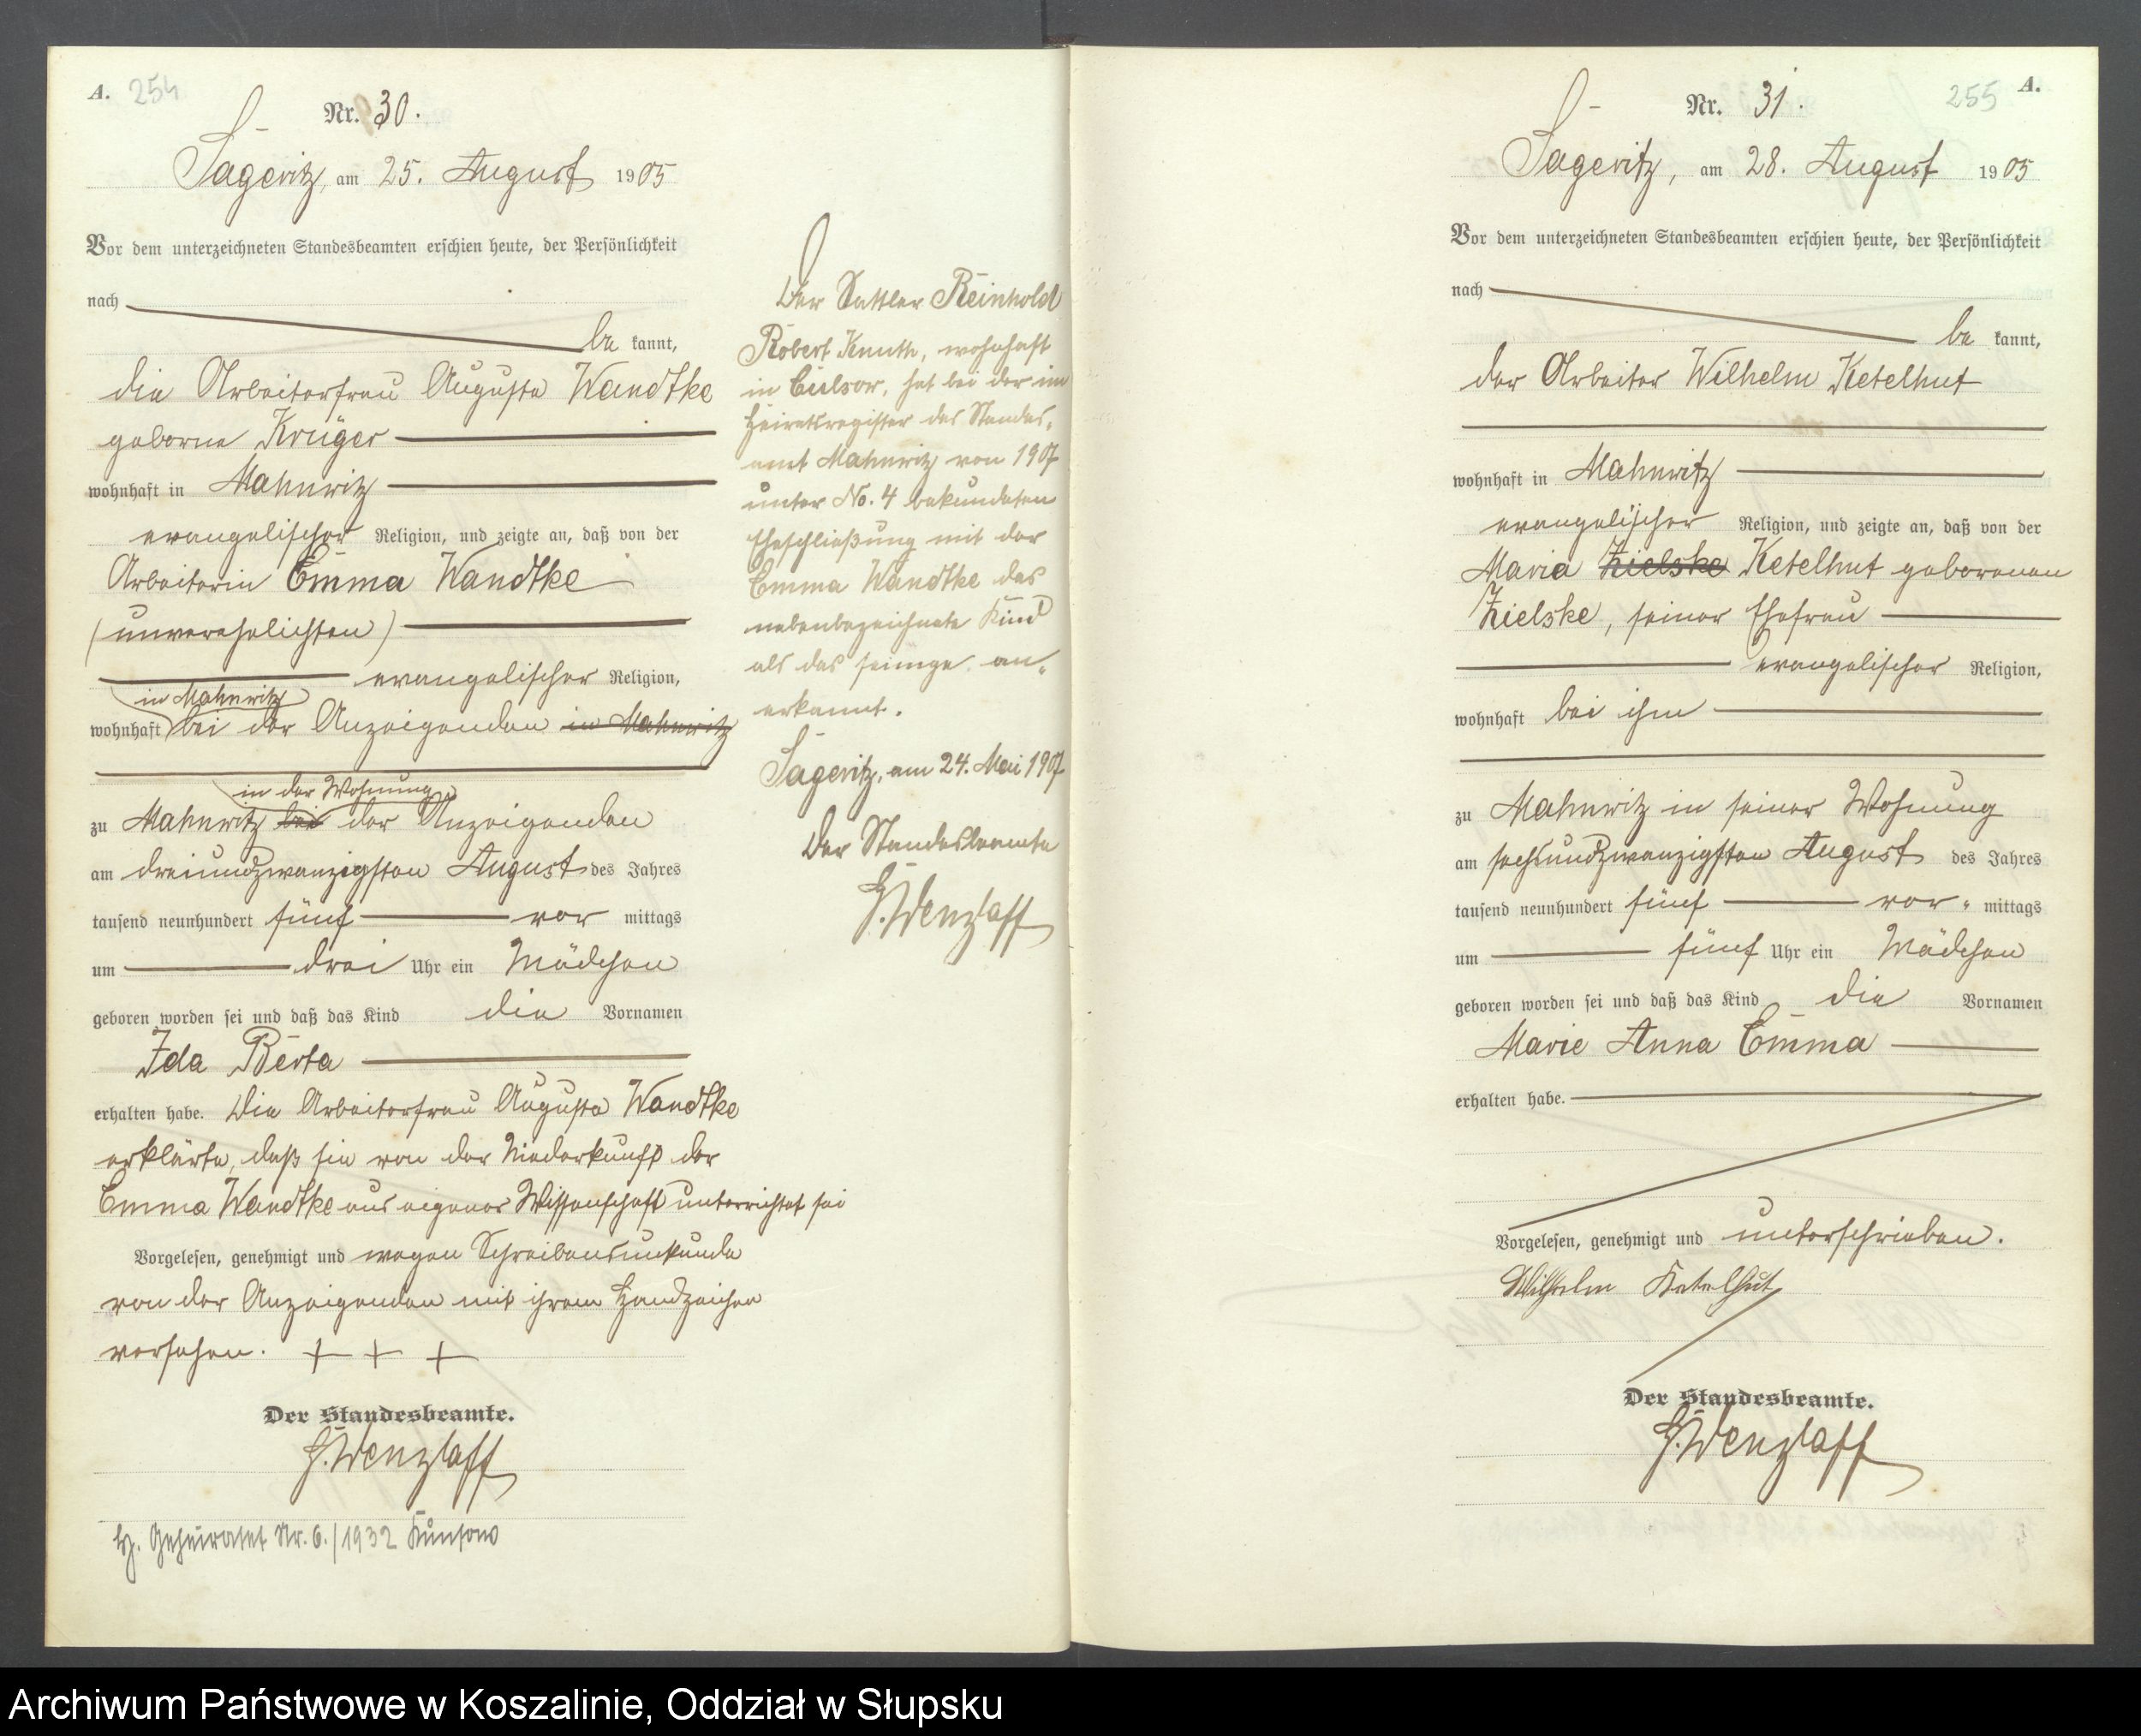 A. 254
Nr. 30.
Sageritz, am 25. August 1905
Vor dem unterzeichneten Standesbeamten erschien heute, der Persönlichkeit
nach
be kannt,
die Arbeiterfrau Auguste Wandtke
geborne Krüger
wohnhaft in Mahnwitz
evangelischer Religion, und zeigte an, daß von der
Arbeiterin Emma Wandtke
(unverehelichten)
evangelischer Religion,
in Mahnwitz
wohnhaft bei der Anzeigenden in Mahnwitz
in der Wohnung
zu Mahnwitz bei der Anzeigenden
am dreiundzwanzigsten August des Jahres
tausend neunhundert fünf vor mittags
um drei Uhr ein Mädchen
geboren worden sei und daß das Kind die Vornamen
Ida Berta
erhalten habe. Die Arbeiterfrau Auguste Wandtke
erklärte, daß sie von der Niederkunft der
Emma Wandtke aus eigener Wissenschaft unterrichtet sei
Vorgelesen, genehmigt und wegen Schreibensunkunde
von der Anzeigenden mit ihrem Handzeichen
versehen. + + +
Der Standesbeamte.
H. Wenzlaff
Geheiratet Nr. 6./1932
Der Sattler Reinhold
Robert Knuth, wohnhaft
in Culsow, hat bei der im
Heiratsregister des Standes-
amt Mahnwitz von 1907
unter No. 4 bekundeten
Eheschließung mit der
Emma Wandtke das
nebenbezeichnete Kind
als das seinige an-
erkannt.
Sageritz, am 24. Mai 1907
Der Standesbeamte
H. Wenzlaff
255 A.
Nr. 31.
Sageritz, am 28. August 1905
Vor dem unterzeichneten Standesbeamten erschien heute, der Persönlichkeit
nach
be kannt,
der Arbeiter Wilhelm Ketelhut
wohnhaft in Mahnwitz
evangelischer Religion, und zeigte an, daß von der
Maria Zielske Ketelhut geborenen
Zielske, seiner Ehefrau
evangelischer Religion,
wohnhaft bei ihm
zu Mahnwitz in seiner Wohnung
am sechsundzwanzigsten August des Jahres
tausend neunhundert fünf vor- mittags
um fünf Uhr ein Mädchen
geboren worden sei und daß das Kind die Vornamen
Marie Anna Emma
erhalten habe.
Vorgelesen, genehmigt und unterschrieben.
Wilhelm Ketelhut
Der Standesbeamte.
H. Wenzlaff
Archiwum Państwowe w Koszalinie, Oddział w Słupsku